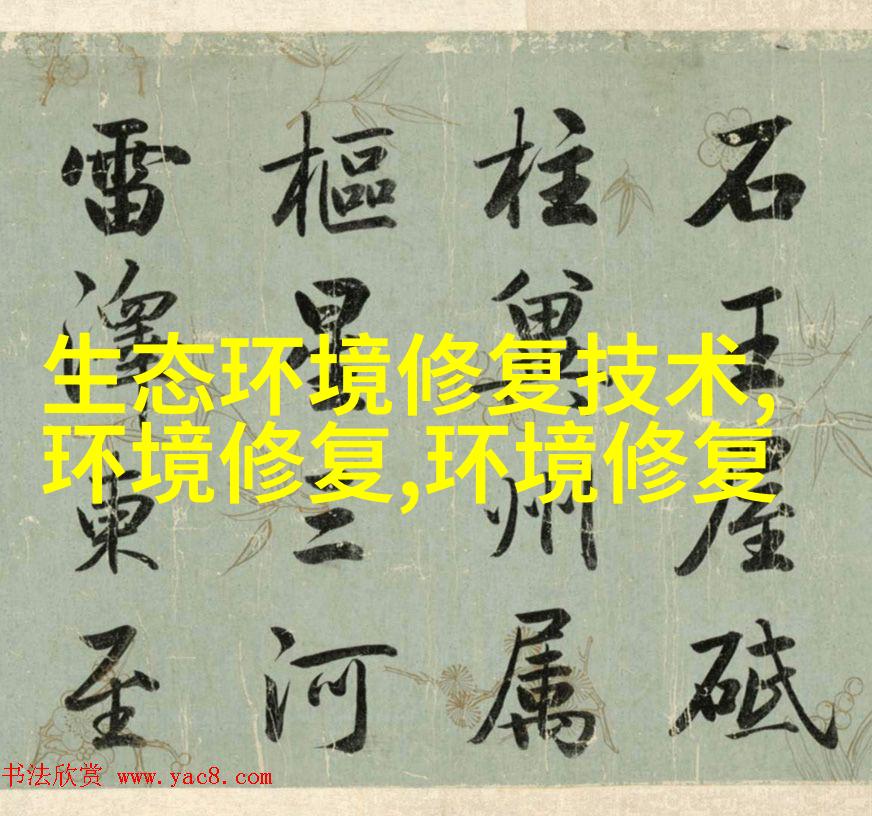 生态环境修复技术,
环境修复,环境修复
石王屋砥
柱冀州属
樞星三河
雷澤東至
书法欣赏 www.yac8.com